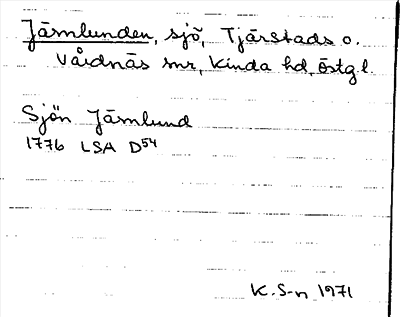 Järnlunden, sjö, Tjärstads o.
Vårdnäs snr, Kinda hd, Östg l.
Sjön Järnlund
1776 LSA D54
K. S-n 1971